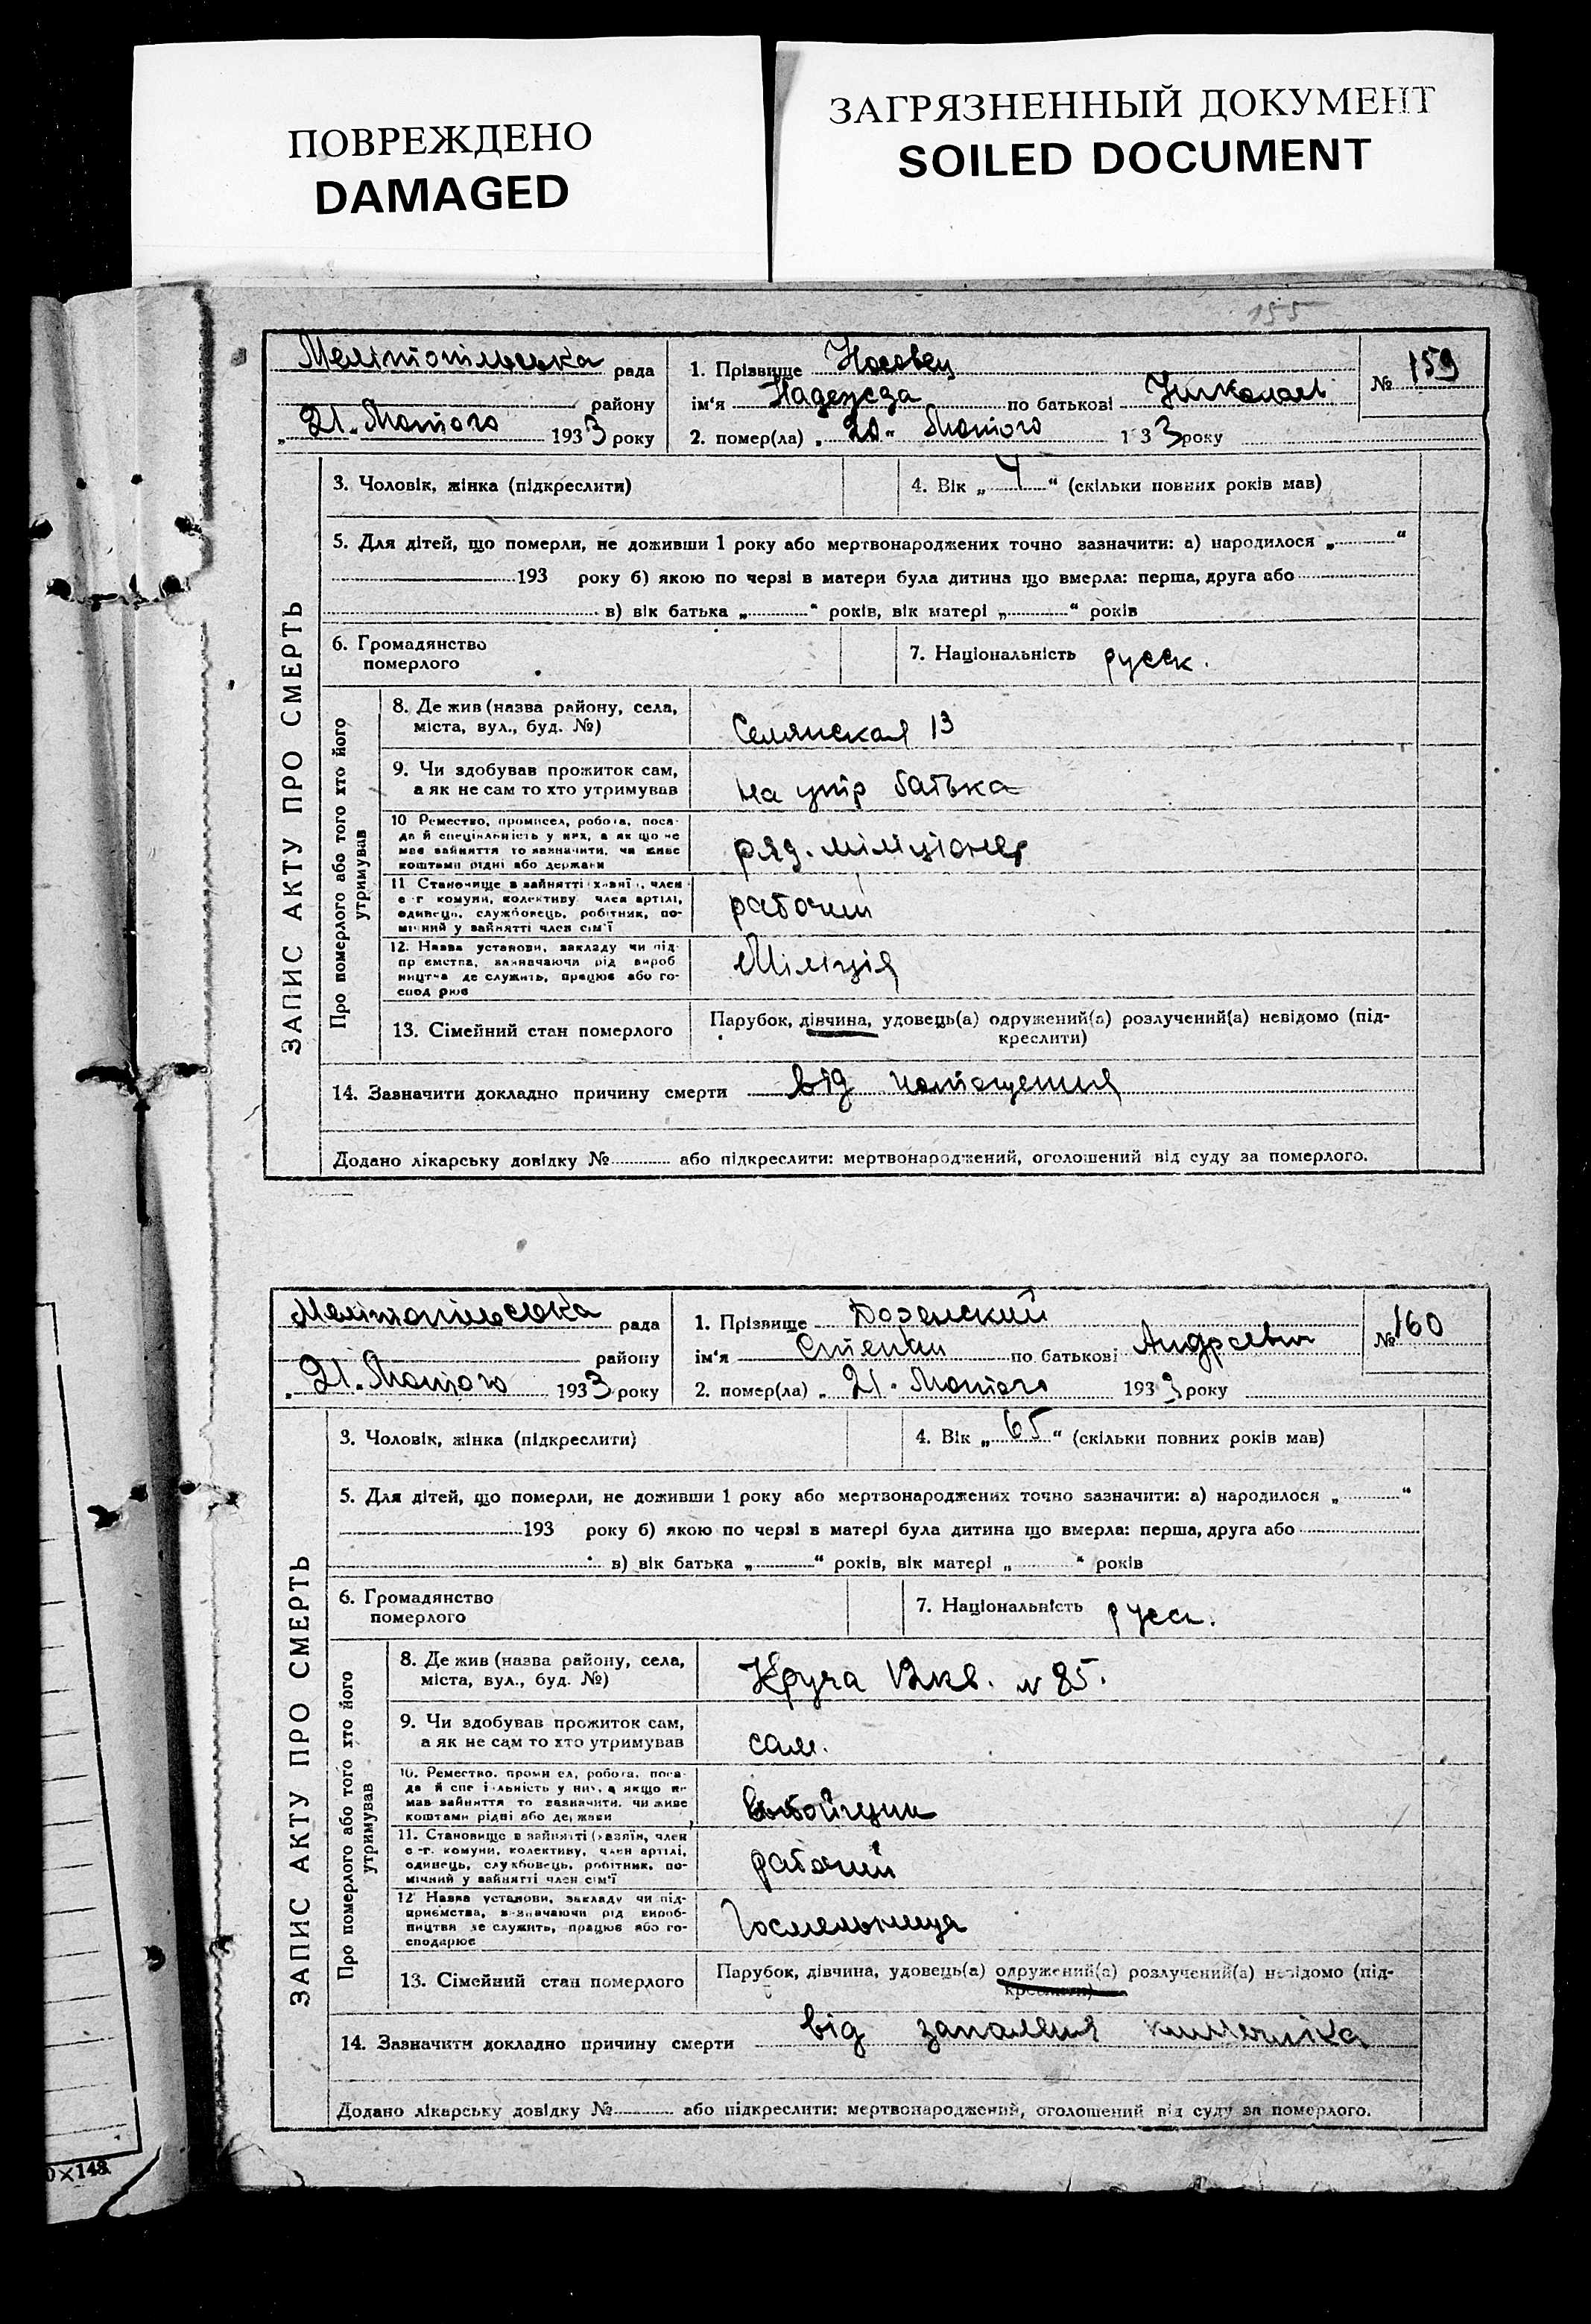 ПОВРЕЖДЕНО
DAMAGED
ЗАГРЯЗНЕННЫЙ ДОКУМЕНТ
SOILED DOCUMENT
155
Мелітопільська рада
району
„21„ Лютого 1933 року
1. Прізвище Носовец
ім'я Надежда по батькові Николаев
2. помер(ла) „20“ Лютого 1 33 року
№ 159
ЗАПИС АКТУ ПРО СМЕРТЬ
3. Чоловік, жінка (підкреслити)
4. Вік „4“ (скільки повних років мав)
5. Для дітей, що померли, не доживши 1 року або мертвонароджених точно зазначити: а) народилося „ “
193 року б) якою по черзі в матери була дитина що вмерла: перша, друга або
в) вік батька „ “ років, вік матері „ “ років
6. Громадянство
померлого
7. Національність русск.
Про померлого або того хто його
утримував
8. Де жив (назва району, села,
міста, вул., буд. №)
13
9. Чи здобував прожиток сам,
а як не сам то хто утримував
на утр батька
10 Ремество, промисел, робота, поса-
да й спеціяльність у них, а як що не
має зайняття то зазначити, чи живе
коштами рідні або держави
ряд. міліціонер
11 Становище в зайнятті (хазяїн, член
с-г комуни, колективу член артілі,
одинець, службовець, робітник, по-
мічний у зайнятті член сім'ї
рабочий
12. Назва установи, закладу чи під-
пр ємства, зазначаючи рід вироб
ництва де служить, працює або го-
спод рює
Міліція
13. Сімейний стан померлого
Парубок, дівчина, удовець(а) одружений(а) розлучений(а) невідомо (під-
креслити)
14. Зазначити докладно причину смерти від истощения
Додано лікарську довідку № або підкреслити: мертвонароджений, оголошений від суду за померлого.
Мелітопільська рада
району
„21„ Лютого 1933 року
1. Прізвище
ім'я Степан по батькові Андреевич
2. помер(ла) „21“ Лютого 1933 року
№ 160
ЗАПИС АКТУ ПРО СМЕРТЬ
3. Чоловік, жінка (підкреслити)
4. Вік „65“ (скільки повних років мав)
5. Для дітей, що померли, не доживши 1 року або мертвонароджених точно зазначити: а) народилося „ “
193 року б) якою по черзі в матері була дитина що вмерла: перша, друга або
в) вік батька „ “ років, вік матері „ “ років
6. Громадянство
померлого
7. Національність русск.
Про померлого або того хто його
утримував
8. Де жив (назва району, села,
міста, вул., буд. №)
Круча 12 кв. № 85.
9. Чи здобував прожиток сам,
а як не сам то хто утримував
сам.
10. Ремество, промисел, робота, поса-
да й спеціяльність у них, а якщо не
має зайняття то зазначити, чи живе
коштами рідні або держави
11. Становище в зайнятті (хазяїн, член
с-г. комуни, колективу, член артілі,
одинець, службовець, робітник, по-
мічний у зайнятті член сім'ї
рабочий
12 Назва установи, закладу чи під-
приємства, зазначаючи рід вироб-
ництва де служить, працює або го-
сподарює
Госмельница
13. Сімейний стан померлого
Парубок, дівчина, удовець(а) одружений(а) розлучений(а) невідомо (під-
креслити)
14. Зазначити докладно причину смерти від запалення кишечніка
Додано лікарську довідку № або підкреслити: мертвонароджений, оголошений від суду за померлого.
0×148